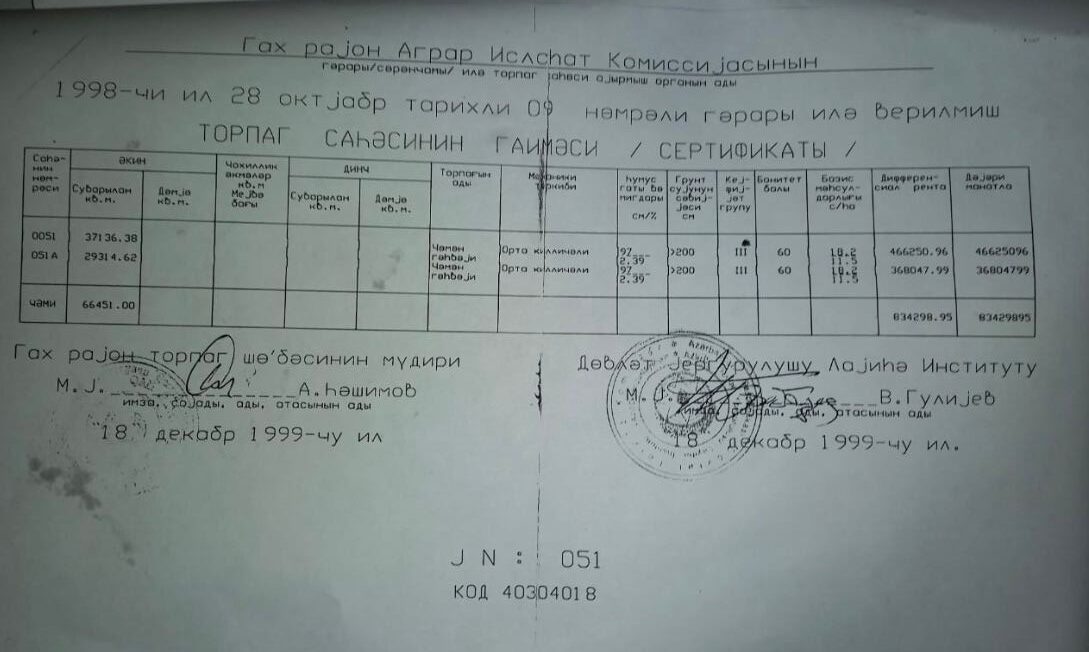 Гах рајон Аграр Ислаһат Комиссијасынын
гәрары/сәрәнчамы/ илә торпаг саһәси ајырмыш органын ады
1998-чи ил 28 октјабр тарихли 09 нөмрәли гәрары илә верилмиш
ТОРПАГ САҺӘСИНИН ГАИМӘСИ / СЕРТИФИКАТЫ /
Саһә-нин нөм-рәси әкин Чохиллик әкмәләр кв.м Мејвә бағы динч Торпағын ады Механики тәркиби һумус гаты вә мигдары см/% Грунт сујунун сәвиј-јәси см Кеј-фиј-јәт групу Бонитет балы Базис мәһсул-дарлығы с/һа Дифферен-сиал рента Дәјәри манатла
Суварылан кв.м. Дәмјә кв.м. Суварылан кв.м. Дәмјә кв.м.
0051 37136.38 Чәмән гәһвәји Орта килличәли 97 2.39 >200 III 60 18.2 11.5 466250.96 46625096
051А 29314.62 Чәмән гәһвәји Орта килличәли 97 2.39 >200 III 60 18.2 11.5 368047.99 36804799
чәми 66451.00 834298.95 83429895
Гах рајон торпаг шө'бәсинин мүдири
М.Ј. А.Һәшимов
имза, сојады, ады, атасынын ады
"18" декабр 1999-чу ил
Дөвләт Јергурулушу Лајиһә Институту
М.Ј. В.Гулијев
имза, сојады, ады, атасынын ады
18 декабр 1999-чу ил.
Ј N : 051
КОД 40304018